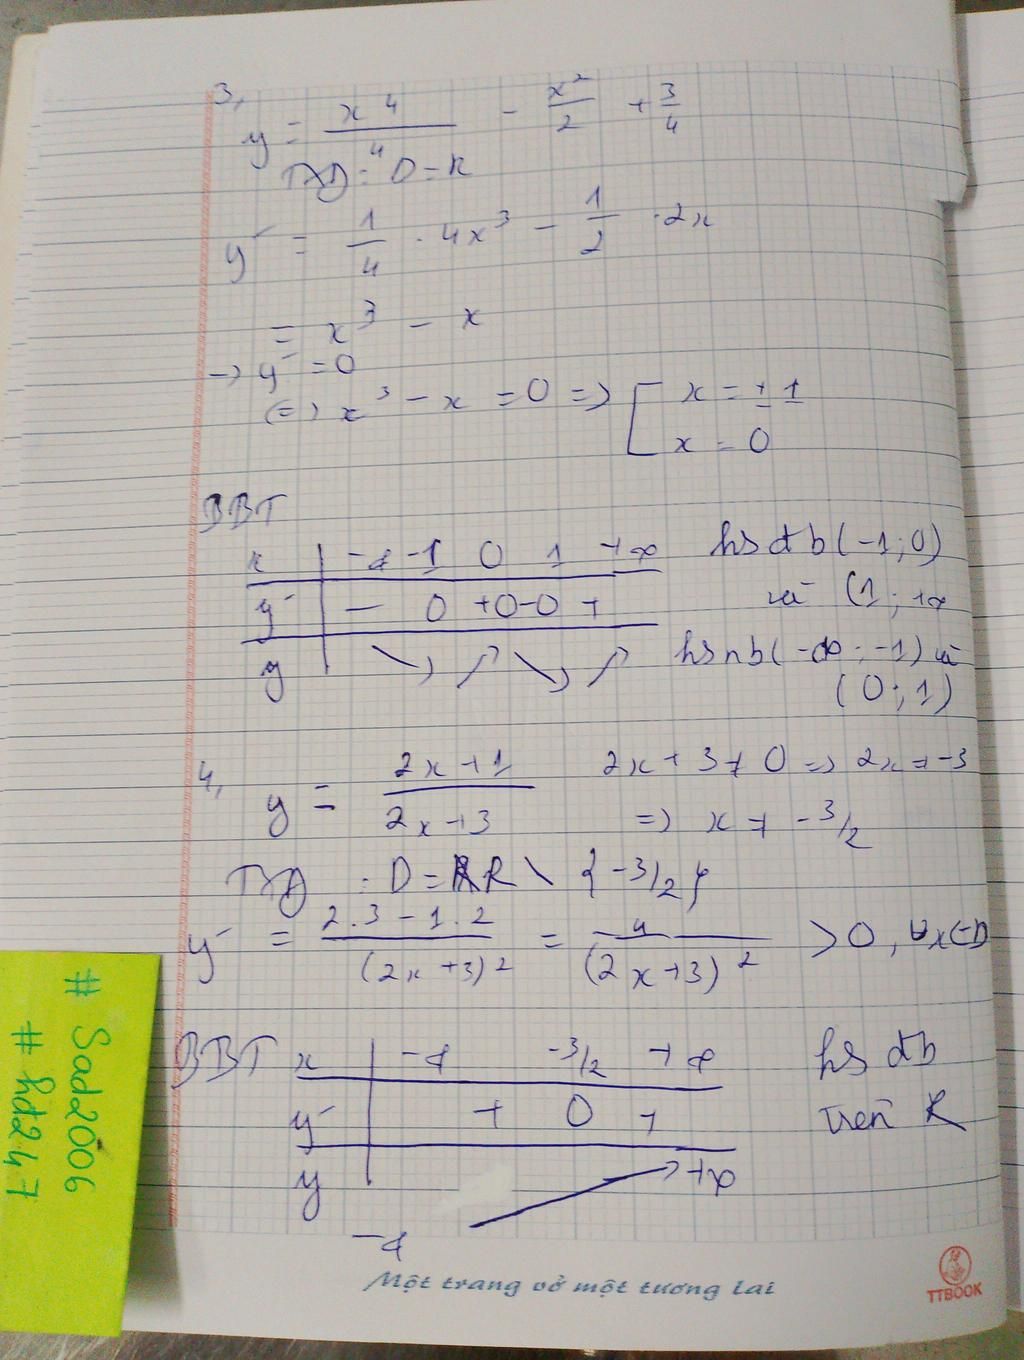 3,
y = x⁴/4 - x²/2 + 3/4
TXĐ: D = R
y' = 1/4 · 4x³ - 1/2 · 2x
= x³ - x
→ y' = 0
(=) x³ - x = 0 => [ x = ±1
x = 0
BBT
x | -∞ -1 0 1 +∞
y' | - 0 + 0 - 0 +
y | ↘ ↗ ↘ ↗
hs đb (-1; 0)
và (1; +∞
hs nb (-∞; -1) và
(0; 1)
4,
y = (2x + 1)/(2x + 3) 2x + 3 ≠ 0 => 2x ≠ -3
=> x ≠ -3/2
TXĐ: D = R \ {-3/2}
y' = (2.3 - 1.2)/(2x + 3)² = 4/(2x + 3)² > 0, ∀x ∈ D
BBT x | -∞ -3/2 +∞
y' | + 0 +
y | -∞ ↗ +∞
hs đb
trên R
# Sad2006
# hd247
Một trang vở một tương lai
TTBOOK